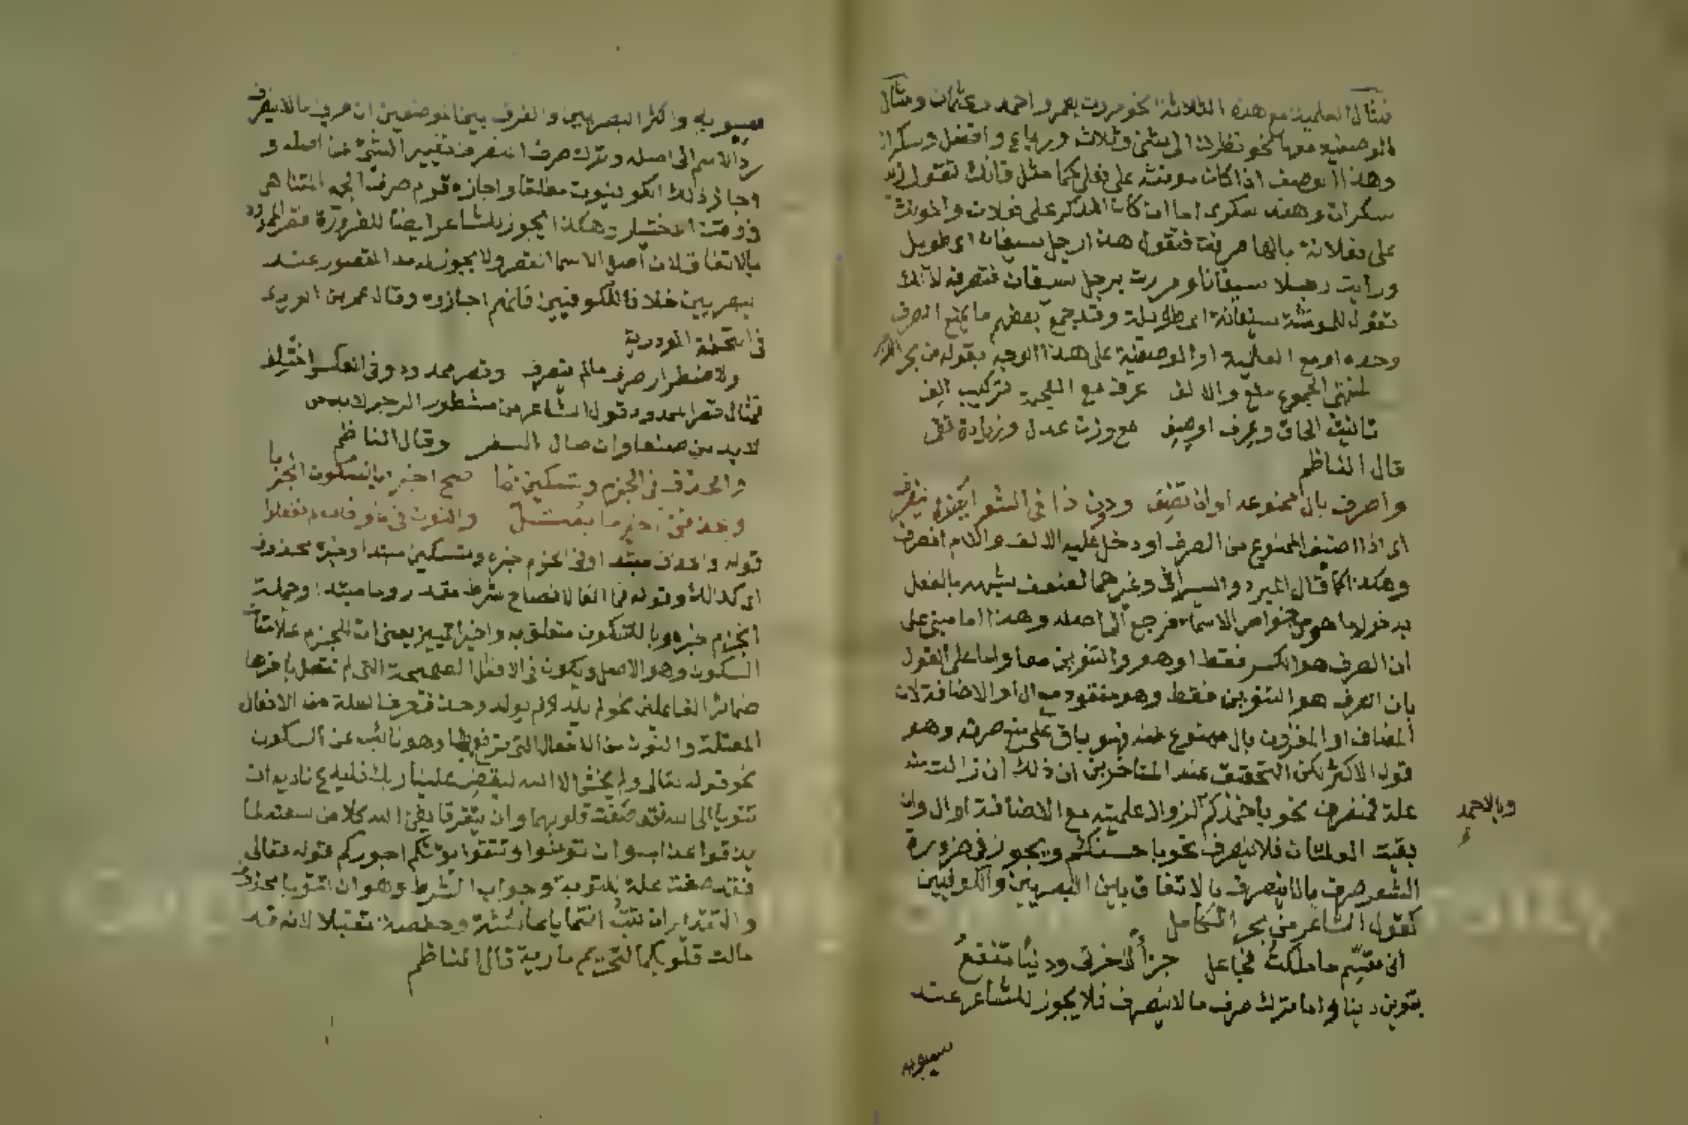 فمثال العلمية مع هذه الثلاثة نحو مررت بعمر واحمد وعثمان ومثال
الوصفية معها نحو نظرت الى مثنى وثلاث ورباع وافضل وسكران
وهذا الوصف اذا كان مونثه على فعلى كما مثل فانك تقول زيد
سكران وهند سكرى اما ان كان المذكر على فعلان والمونث
على فعلانة بالها صرفته فتقول هذا رجل سيفان اى طويل
ورايت رجلا سيفانا ومررت برجل سيفان فتصرفه لانك
تقول للمونثة سيفانة اى طويلة وقد جمع بعضهم ما يمنع الصرف
وحده او مع العلمية او الوصفية على هذا الوجه بقوله من بحر الرجز
لمنتهى الجموع منع والالف عرف مع العجمة تركيب الف
تانيث الحاق وعرف او صف مع وزن عدل وزيادة تفى
قال الناظم
واصرف بال ممنوعه او ان تضف ودون ذا فى الشعر
اى اذا اضيف الممنوع من الصرف او دخل عليه الالف واللام انصرف
وهكذا كما قال المبرد والسيرافى وغيرهما لضعف شبهه بالفعل
بدخول ما هو من خواص الاسماء فرجع الى اصله وهذا اما مبنى على
ان الصرف هو الكسر فقط او هو والتنوين معا واما على القول
بان الصرف هو التنوين فقط وهو مفقود مع ال او الاضافة لان
المضاف او المقرون بال ممنوع منه فهو باق على منع صرفه وهو
قول الاكثر لكن التحقيق عند المتاخرين ان ذلك ان زالت منه
علة فمنصرف نحو باحمدكم لزوال علميته مع الاضافة او ال وان
وبالاحمد
بقيت العلتان فلا ينصرف نحو باحسنكم ويجوز فى ضرورة
الشعر صرف ما لا ينصرف بالاتفاق بين البصريين والكوفيين
كقول الشاعر من بحر الكامل
انى مقسم ما ملكت فجاعل جزأ لاخرتى ودنيا تنفع
بتنوين دنيا واما ترك صرف ما لا ينصرف فلا يجوز للشاعر عند
سيبويه
سيبويه واكثر البصريين والفرق بين الموضعين ان صرف ما لا ينصرف
رد الاسم الى اصله وترك صرف المنصرف تغيير الشئ عن اصله و
اجاز ذلك الكوفيون مطلقا واجاز قوم صرف الجمع المتناهى
فى الاختيار وهكذا يجوز للشاعر ايضا للضرورة قصر الممدود
بالاتفاق لان اصل الاسما القصر ولا يجوز له مد المقصور عند
البصريين خلافا للكوفيين فانهم اجازوه وقال عمر بن الوردى
فى التحفة الوردية
ولاضطرار صرف ما لم ينصرف وقصر ممدود وفى العكس اختلف
فمثال قصر الممدود قول الشاعر من مشطور الرجز
لا بد من صنعا وان طال السفر وقال الناظم
والحذف فى الجزم وتسكين
قوله والحذف مبتدا وفى الجزم خبره وتسكين مبتدا وخبره محذوف
اى كذلك وقوله فما الفا لافصاح شرط مقدر وما مبتدا وجملة
انجزم خبره وبالسكون متعلق به يعنى ان للجزم علامتان
السكون وهو الاصل ويكون فى الافعال الصحيحة التى لم تتصل باخرها
ضمائر الفاعلين نحو لم يلد ولم يولد وحذف حرف العلة من الافعال
المعتلة والنون من الافعال التى ترفع بها وهو نائب عن السكون
نحو قوله تعالى ولم يخش الا الله ليقض علينا ربك فليدع ناديه ان
تتوبا الى الله فقد صغت قلوبكما وان يتفرقا يغن الله كلا من سعته لما
يذوقوا عذاب وان تومنوا وتتقوا يوتكم اجوركم قوله تعالى
فقد صغت علة للتوبة وجواب الشرط وهو ان تتوبا محذوف
والتقدير ان تتب انتما يا عائشة وحفصة تقبلا لانه قد
مالت قلوبكما لتحريم مارية قال الناظم